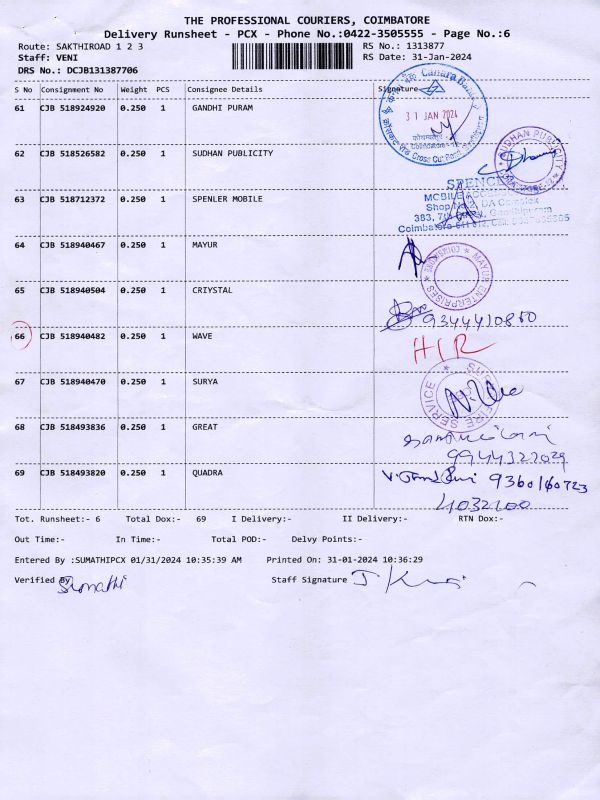 THE PROFESSIONAL COURIERS, COIMBATORE
Delivery Runsheet - PCX - Phone No.:0422-3505555 - Page No.:6
Route: SAKTHIROAD 1 2 3 RS No.: 1313877
Staff: VENI RS Date: 31-Jan-2024
DRS No.: DCJB131387706
S No Consignment No Weight PCS Consignee Details Signature
61 CJB 518924920 0.250 1 GANDHI PURAM
Canara Bank
31 JAN 2024
Cross Cut Road
62 CJB 518526582 0.250 1 SUDHAN PUBLICITY
SUDHAN PUBLICITY
63 CJB 518712372 0.250 1 SPENLER MOBILE
SPENCE
MOBILE
Shop No. DA Complex
383, 7th Gandhipuram
Coimbatore
64 CJB 518940467 0.250 1 MAYUR
MAYUR ENTERPRISES COIMBATORE
65 CJB 518940504 0.250 1 CRIYSTAL
9344410850
66 CJB 518940482 0.250 1 WAVE
H/R
67 CJB 518940470 0.250 1 SURYA
FIRE SERVICE
68 CJB 518493836 0.250 1 GREAT
9944327029
69 CJB 518493820 0.250 1 QUADRA
9360160723
4032100
Tot. Runsheet:- 6 Total Dox:- 69 I Delivery:- II Delivery:- RTN Dox:-
Out Time:- In Time:- Total POD:- Delvy Points:-
Entered By :SUMATHIPCX 01/31/2024 10:35:39 AM Printed On: 31-01-2024 10:36:29
Verified By Sumathi Staff Signature